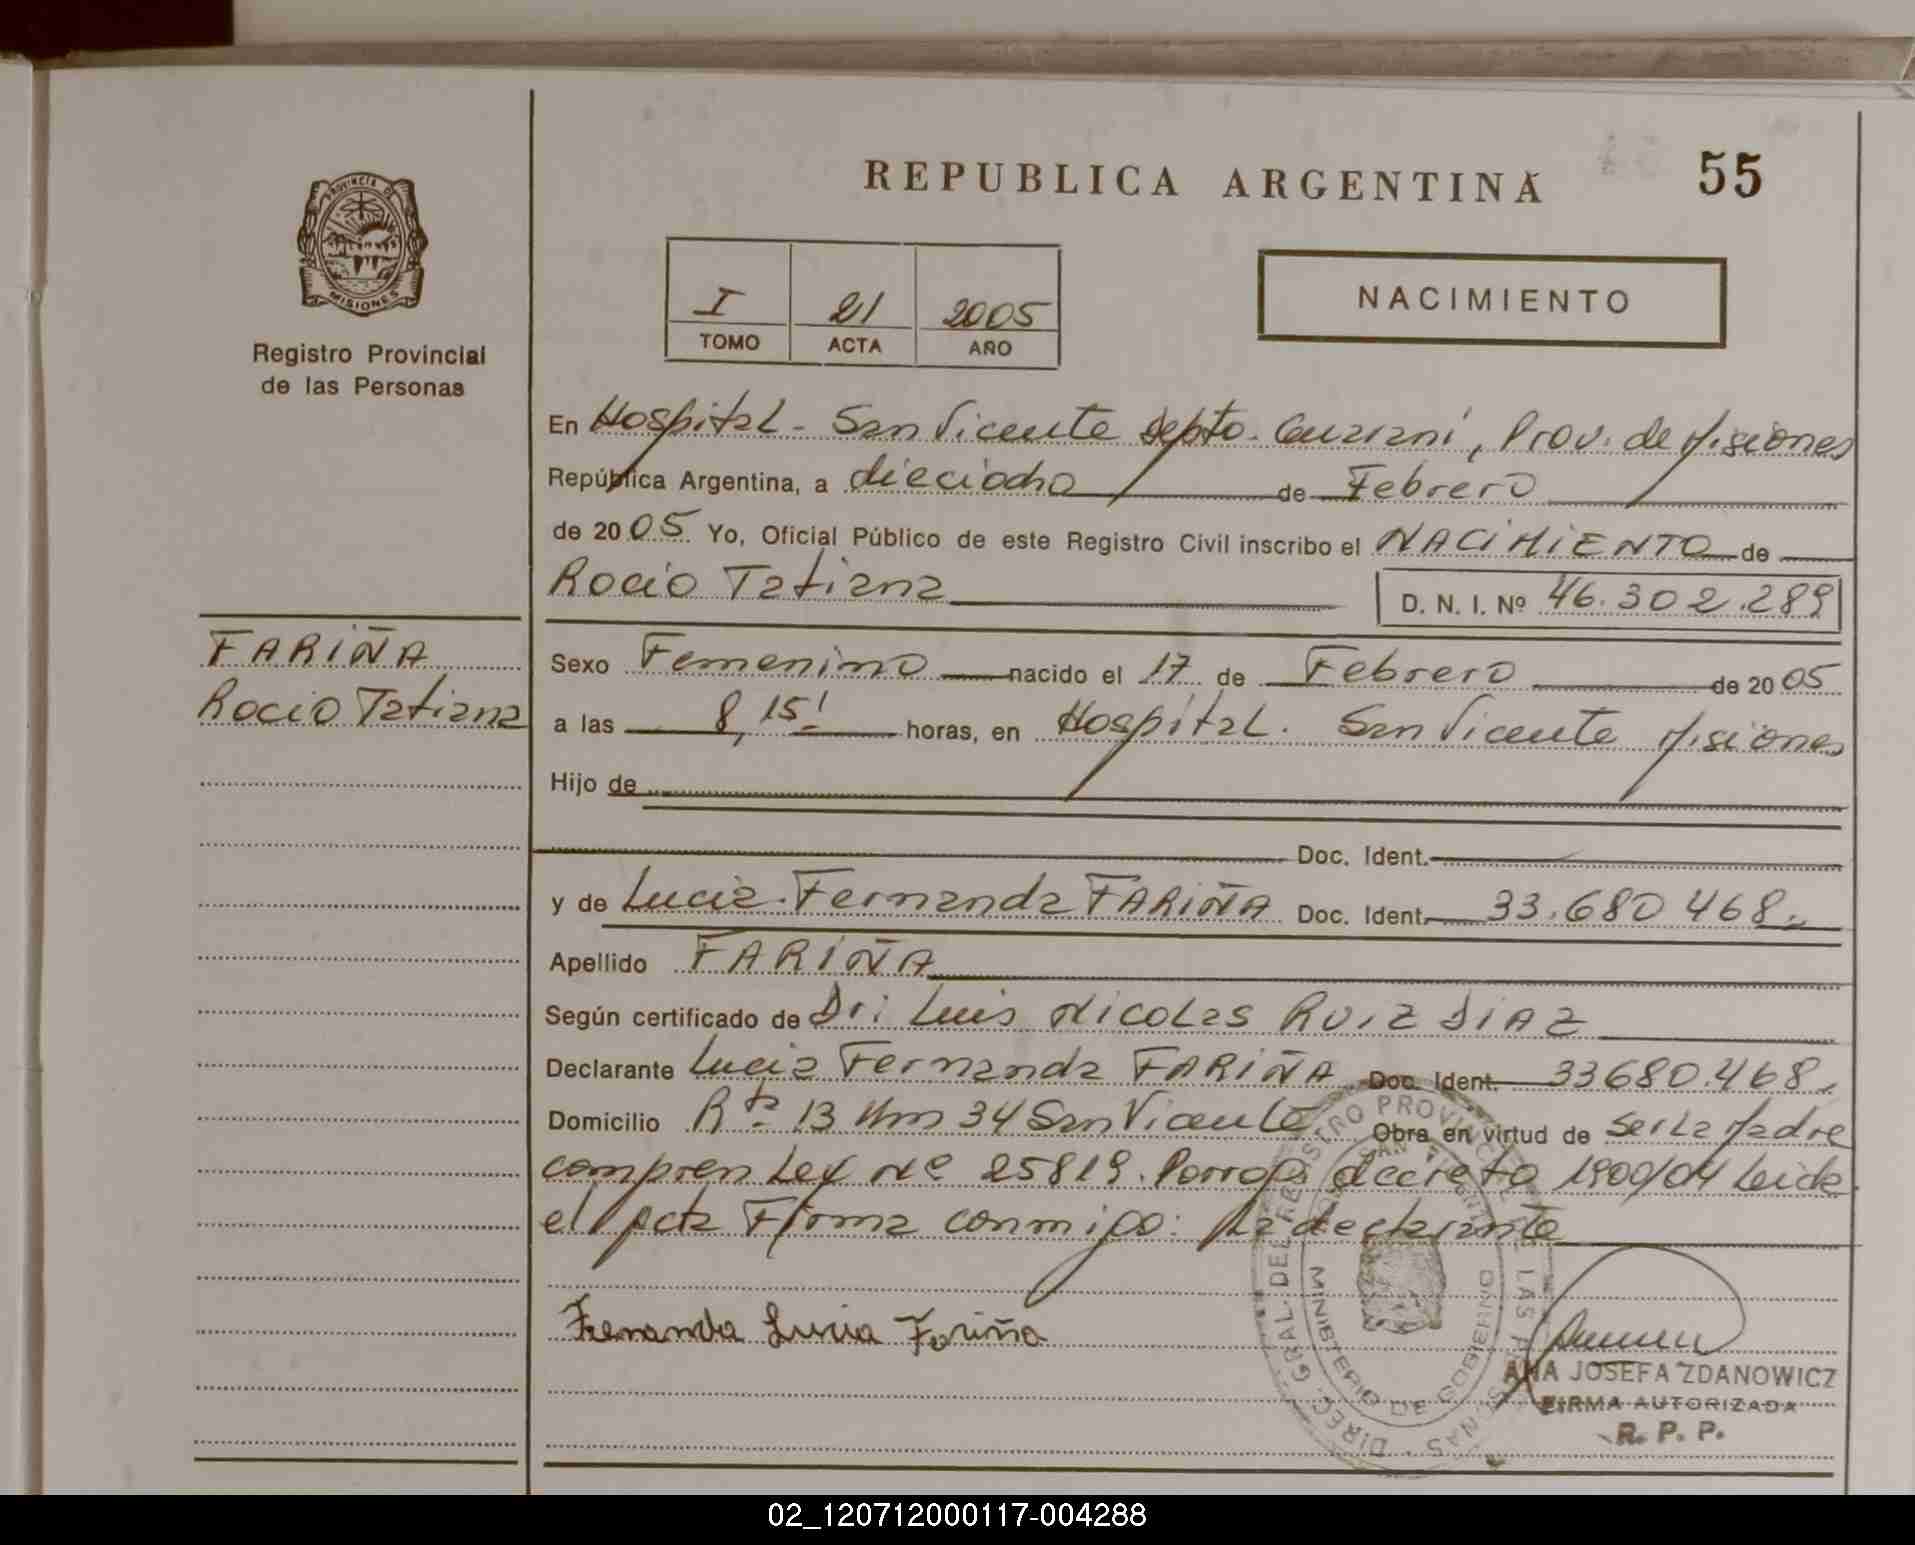 REPUBLICA ARGENTINA
55
PROVINCIA DE
MISIONES
Registro Provincial
de las Personas
I 21 2005
TOMO ACTA AÑO
NACIMIENTO
En Hospital - San Vicente Depto. Guaraní, Prov. de Misiones
República Argentina, a dieciocho de Febrero
de 2005. Yo, Oficial Público de este Registro Civil inscribo el NACIMIENTO de
Rocio Tatiana D. N. I. Nº 46.302.289
FARIÑA
Rocio Tatiana
Sexo Femenino nacido el 17 de Febrero de 2005
a las 8,15' horas, en Hospital. San Vicente Misiones
Hijo de
Doc. Ident.
y de Lucia Fernanda FARIÑA Doc. Ident. 33.680 468
Apellido FARIÑA
Según certificado de Dr: Luis Nicolas RUIZ DIAZ
Declarante Lucia Fernanda FARIÑA Doc. Ident. 33680.468
Domicilio Rta 13 Km 34 San Vicente Obra en virtud de ser la Madre
compren Ley Nº 25819. Porroga decreto 1900/04 Leida
el acta Firma conmigo: La declarante
Fernanda Lucia Fariña
DIREC. GRAL. DEL REGISTRO PROVINCIAL DE LAS PERSONAS
MINISTERIO DE GOBIERNO
ANA JOSEFA ZDANOWICZ
FIRMA AUTORIZADA
R. P. P.
02_120712000117-004288